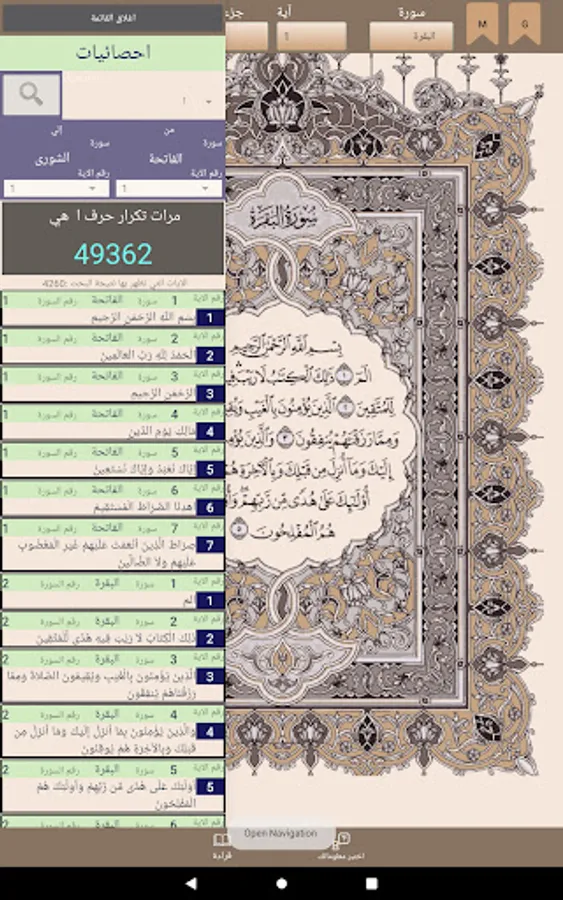 اغلاق القائمة
احصائيات
ا
من
إلى
سورة
سورة
الفاتحة
الشورى
رقم الاية
رقم الاية
1
1
مرات تكرار حرف ا هي
49362
الايات التي تظهر بها نتيجة البحث :4260
رقم الاية 1 سورة الفاتحة رقم السورة 1
1 بسم الله الرحمن الرحيم
رقم الاية 2 سورة الفاتحة رقم السورة 1
2 الحمد لله رب العالمين
رقم الاية 3 سورة الفاتحة رقم السورة 1
3 الرحمن الرحيم
رقم الاية 4 سورة الفاتحة رقم السورة 1
4 مالك يوم الدين
رقم الاية 5 سورة الفاتحة رقم السورة 1
5 إياك نعبد وإياك نستعين
رقم الاية 6 سورة الفاتحة رقم السورة 1
6 اهدنا الصراط المستقيم
رقم الاية 7 سورة الفاتحة رقم السورة 1
7 صراط الذين أنعمت عليهم غير المغضوب
عليهم ولا الضالين
رقم الاية 1 سورة البقرة رقم السورة 2
1 الم
رقم الاية 2 سورة البقرة رقم السورة 2
2 ذلك الكتاب لا ريب فيه هدى للمتقين
رقم الاية 3 سورة البقرة رقم السورة 2
3 الذين يؤمنون بالغيب ويقيمون الصلاة ومما
رزقناهم ينفقون
رقم الاية 4 سورة البقرة رقم السورة 2
4 والذين يؤمنون بما أنزل إليك وما أنزل من
قبلك وبالآخرة هم يوقنون
رقم الاية 5 سورة البقرة رقم السورة 2
5 أولئك على هدى من ربهم وأولئك هم
المفلحون
6 سورة البقرة
G
M
سورة
البقرة
آية
1
جزء
سورة البقرة
بسم الله الرحمن الرحيم
الم ١ ذلك الكتاب لا ريب
للمتقين ٢ الذين يؤمنون بالغيب
ومما رزقناهم ينفقون ٣ والذين
إليك وما أنزل من قبلك وبالآخرة
أولئك على هدى من ربهم
هم المفلحون ٥
Open Navigation
قراءة
اختبر معلوماتك